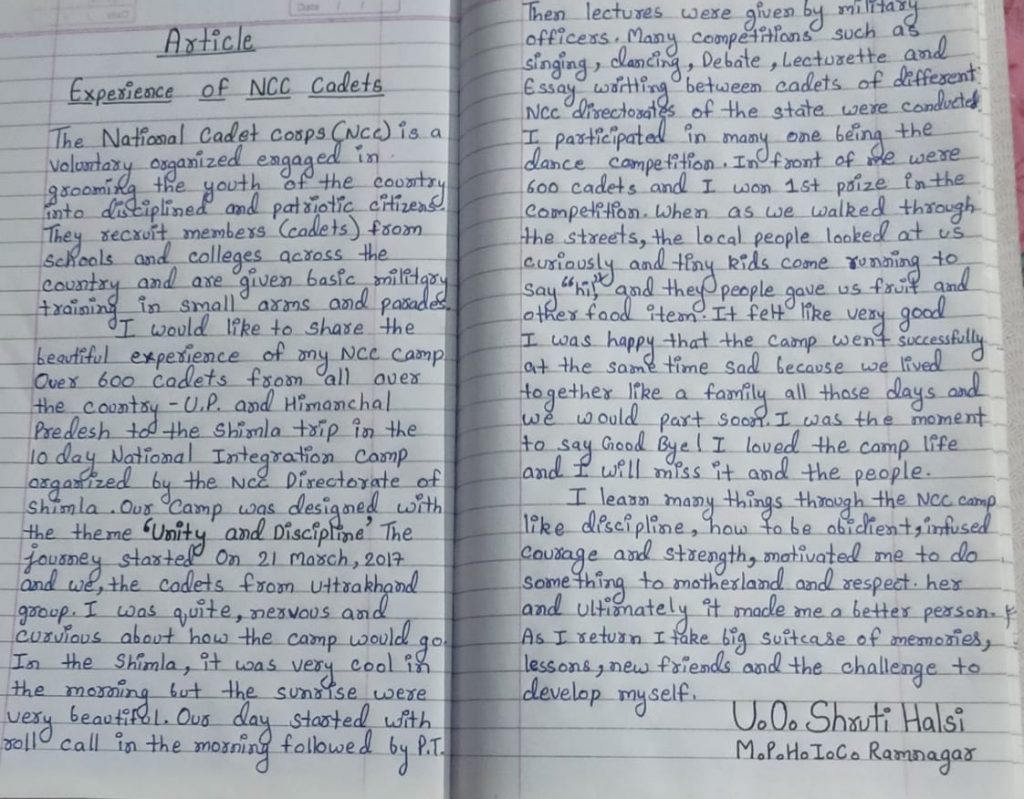 Article
Experience of NCC Cadets
The National Cadet corps (NCC) is a
voluntary organized engaged in
grooming the youth of the country
into disciplined and patriotic citizens.
They recruit members (cadets) from
schools and colleges across the
country and are given basic military
training in small arms and parades.
I would like to share the
beautiful experience of my NCC camp
Over 600 cadets from all over
the country - U.P. and Himanchal
Predesh to the Shimla trip in the
10 day National Integration camp
organized by the NCC Directorate of
Shimla. Our Camp was designed with
the theme "Unity and Discipline" The
journey started On 21 March, 2017
and we, the cadets from Uttrakhand
group. I was quite, nervous and
curvious about how the camp would go.
In the Shimla, it was very cool in
the morning but the sunrise were
very beautiful. Our day started with
roll call in the morning followed by P.T.
Then lectures were given by military
officers. Many competitions such as
singing, dancing, Debate, Lecturette and
Essay writting between cadets of different
NCC directorates of the state were conducted
I participated in many one being the
dance competition. In front of me were
600 cadets and I won 1st prize in the
competition. When as we walked through
the streets, the local people looked at us
curiously and tiny kids come running to
say "hi," and they people gave us fruit and
other food item. It felt like very good
I was happy that the camp went successfully
at the same time sad because we lived
together like a family all those days and
we would part soon. I was the moment
to say Good Bye! I loved the camp life
and I will miss it and the people.
I learn many things through the NCC camp
like discipline, how to be obidient, infused
courage and strength, motivated me to do
something to motherland and respect. her
and ultimately it made me a better person.
As I return I take big suitcase of memories,
lessons, new friends and the challenge to
develop myself.
U.O. Shruti Halsi
M.P.H.I.C. Ramnagar